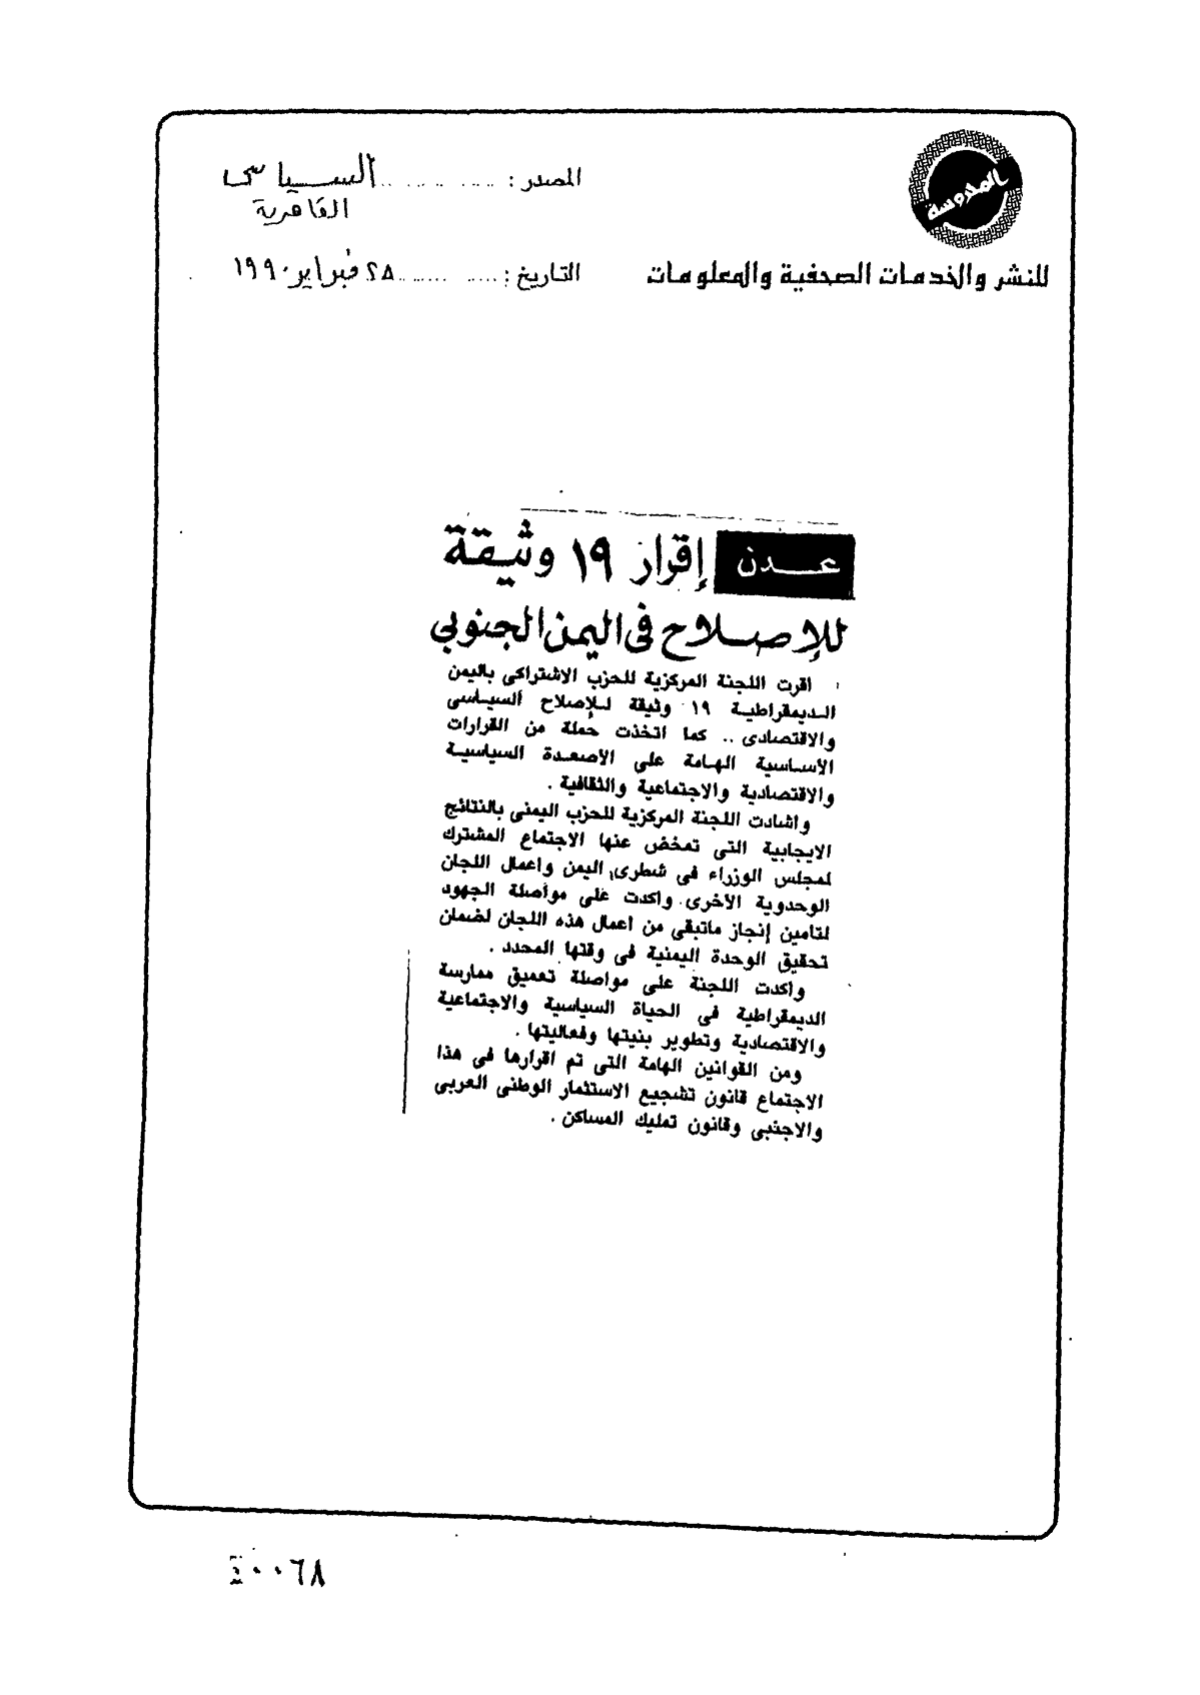 المحروسة
للنشر والخدمات الصحفية والمعلومات
المصدر : .......... السياسى
القاهرية
التاريخ : .......... ٢٨ فبراير ١٩٩٠
عدن إقرار ١٩ وثيقة
للإصلاح فى اليمن الجنوبي
اقرت اللجنة المركزية للحزب الاشتراكى باليمن
الديمقراطية ١٩ وثيقة للإصلاح السياسى
والاقتصادى .. كما اتخذت حملة من القرارات
الأساسية الهامة على الأصعدة السياسية
والاقتصادية والاجتماعية والثقافية .
واشادت اللجنة المركزية للحزب اليمنى بالنتائج
الايجابية التى تمخض عنها الاجتماع المشترك
لمجلس الوزراء فى شطرى اليمن واعمال اللجان
الوحدوية الأخرى . واكدت على مواصلة الجهود
لتامين إنجاز ماتبقى من اعمال هذه اللجان لضمان
تحقيق الوحدة اليمنية فى وقتها المحدد .
واكدت اللجنة على مواصلة تعميق ممارسة
الديمقراطية فى الحياة السياسية والاجتماعية
والاقتصادية وتطوير بنيتها وفعاليتها .
ومن القوانين الهامة التى تم اقرارها فى هذا
الاجتماع قانون تشجيع الاستثمار الوطنى العربى
والاجنبى وقانون تمليك المساكن .
٤٠٠٦٨